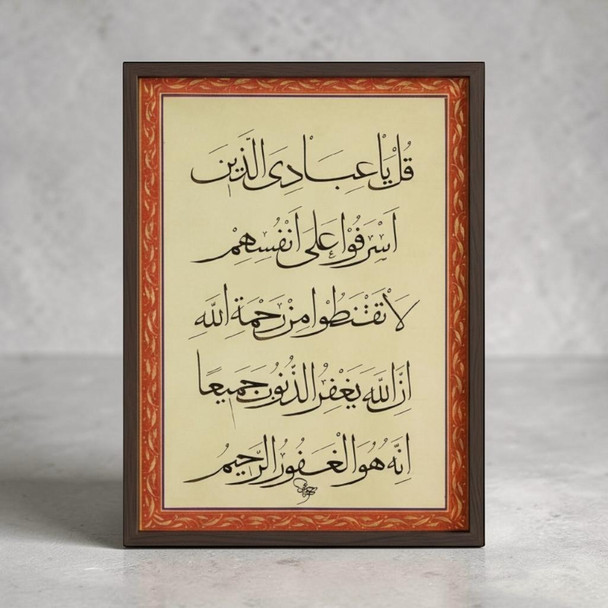 قُلْ يَا عِبَادِىَ الَّذِينَ
اَسْرَفُوْا عَلَى اَنْفُسِهِمْ
لَا تَقْنَطُوا مِنْ رَحْمَةِ اللّٰهِ
اِنَّ اللّٰهَ يَغْفِرُ الذُّنُوبَ جَمِيعًا
اِنَّهُ هُوَ الْغَفُورُ الرَّحِيمُ